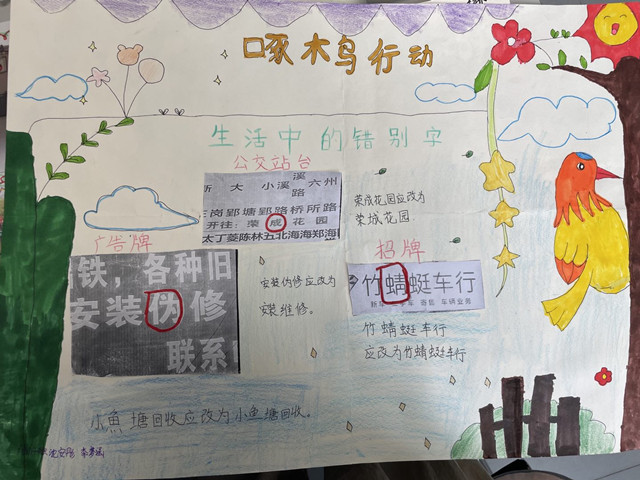 啄木鸟行动
生活中的错别字
公交站台
溪
大 小溪 六州
路 路
岗郢塘郢路桥所路
开往：荣成花园
太丁菱陈林五北海海郑海
荣成花园应改为
荣城花园
广告牌
铁，各种旧
安装伪修
联系
安装伪修应改为
安装维修。
招牌
竹蜻蜓车行
竹蜻蜓车行
应改为竹蜻蜓车行
小鱼塘回收应改为小鱼塘回收。